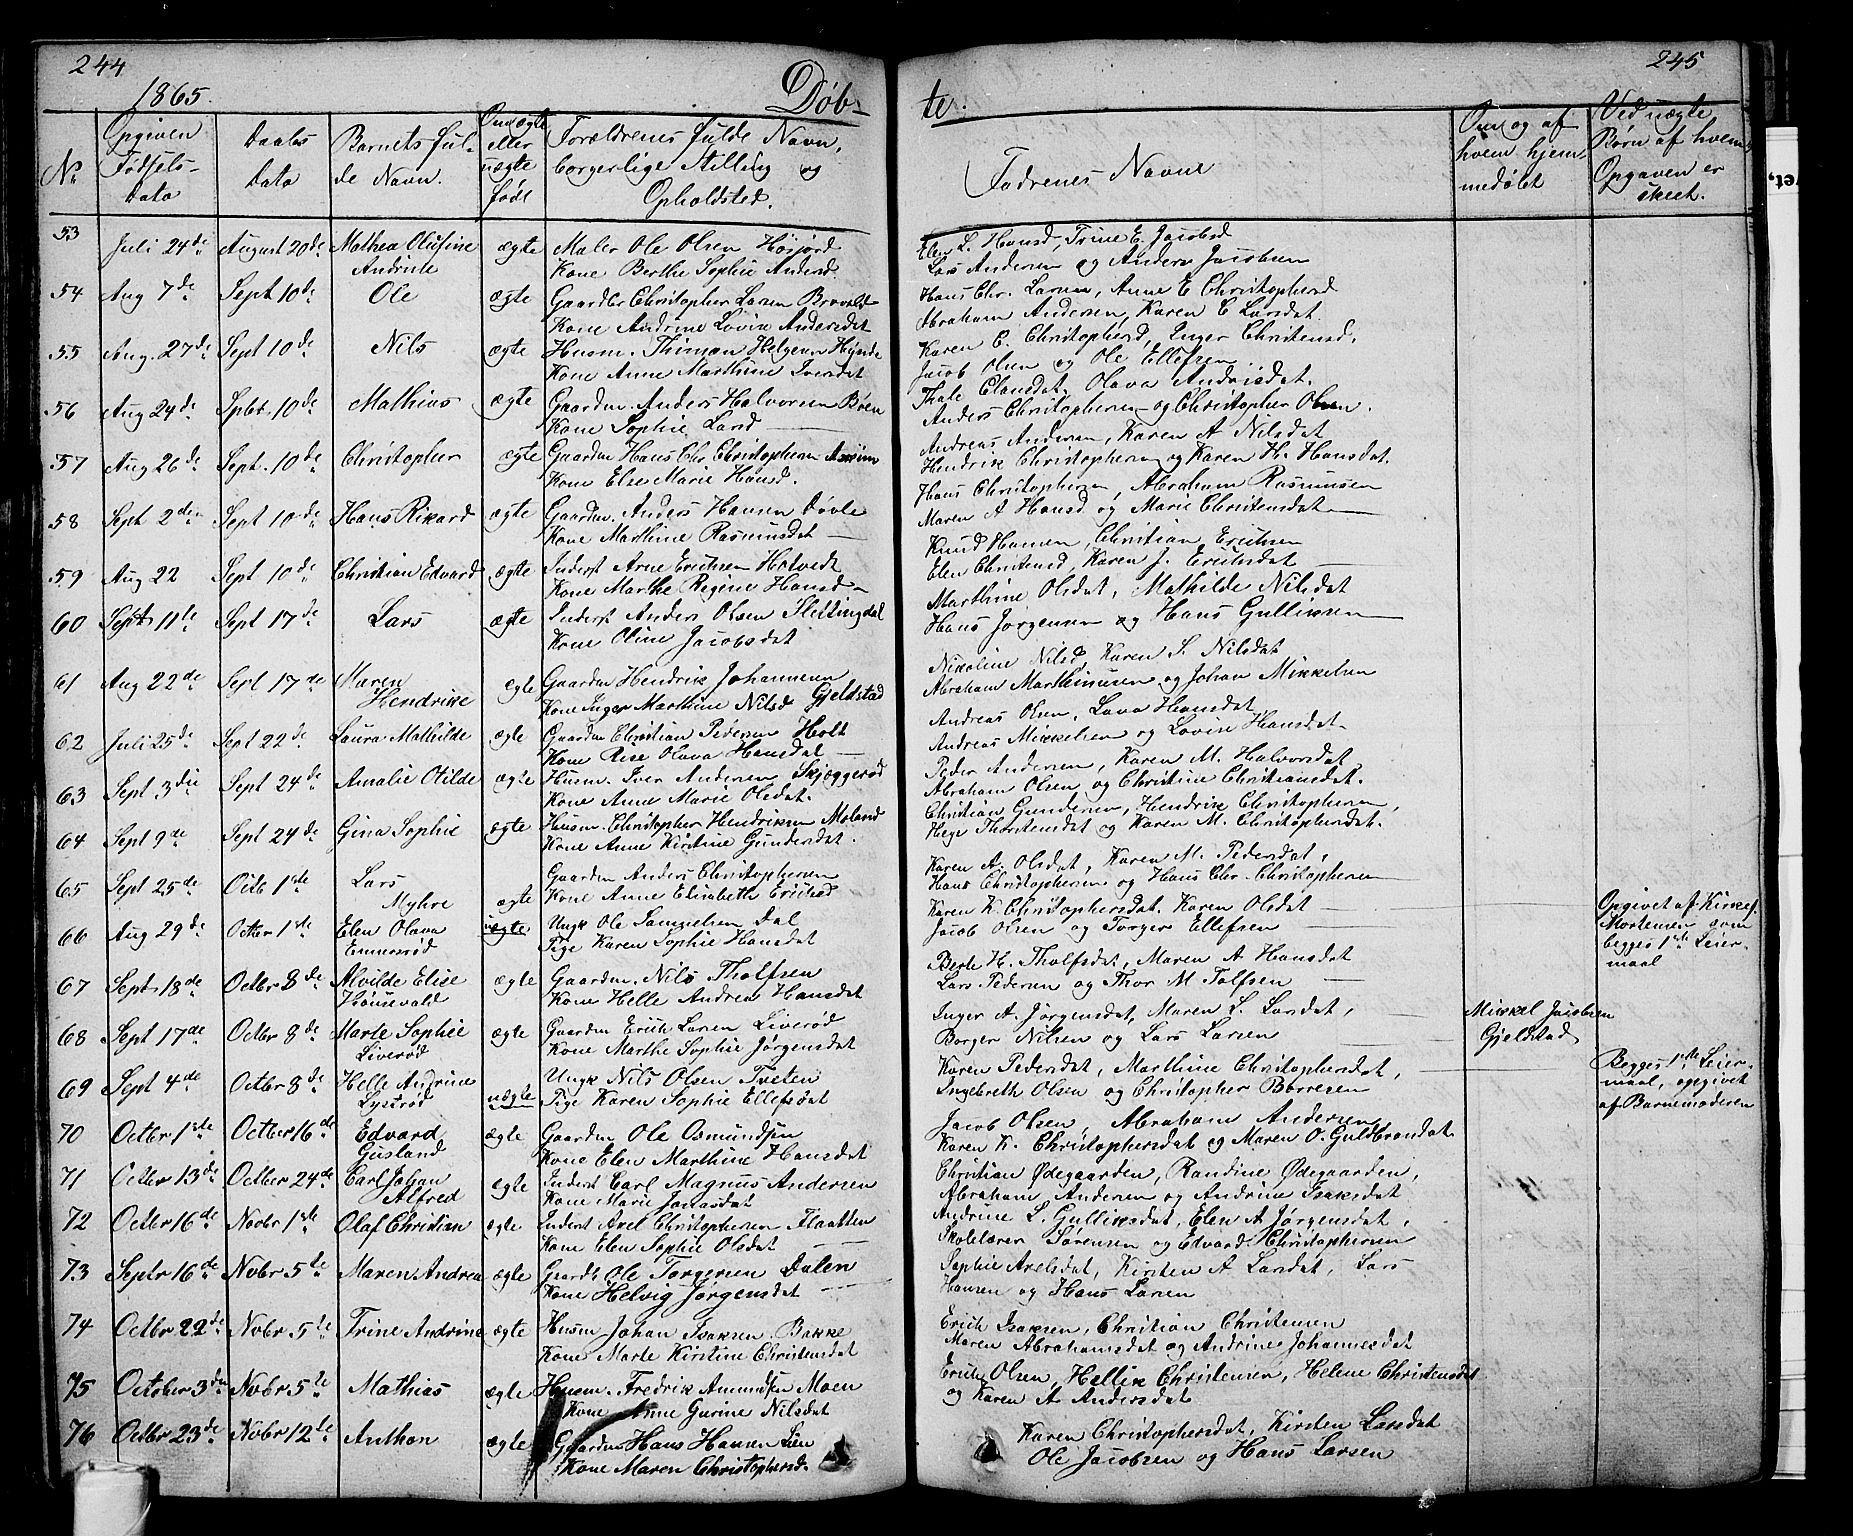 244
1865.
Døb-
No
Opgiven Fødsels-Data
Daabs Data
Barnets fulde Navn.
Om ægte eller uægte født
Forældrenes fulde Navn, borgerlige Stilling og Opholdsted.
53 Juli 24de August 20de Mathea Olufine Andrine ægte Maler Ole Olsen
Kone Berthe Sophie Andersd.
54 Aug 7de Sept 10de Ole ægte Gaardbr Christopher Larsen
Kone Andrine Lovise Andersdat
55 Aug. 27de Sept 10de Nils ægte Husm. Thiman Helgesen
Kone Anne Marthine Iversdat
56 Aug 24de Sptbr. 10de Mathias ægte Gaardm. Anders Halvorsen Bøen
Kone Sophie Larsd
57 Aug 26de Sept. 10de Christopher ægte Gaardm Hans Chr Christophersen
Kone Else Marie Hansd.
58 Sept 2den Sept 10de Hans Rikard ægte Gaardm. Anders Hansen Døvle
Kone Marthine Rasmusdat
59 Aug 22 Sept 10de Christian Edvard ægte Inderst Arne Erichsen Hotvedt
Kone Marthe Regine Hansd
60 Sept 11te Sept 17de Lars ægte Inderst Anders Olsen Slettingdal
Kone Oline Jacobsdat
61 Aug 22de Sept 17de Maren Hendrike ægte Gaardm Hendrik Johannesen
Kone Inger Marthine Nilsd Gjeldstad
62 Juli 25de Sept 22de Laura Mathilde ægte Gaardm Christian Pedersen Holt
Kone Rise Olava Hansdat
63 Sept 3die Sept 24de Amalie Otilde ægte Husm. Iver Andersen Skjøggerød
Kone Anne Marie Olsdat.
64 Sept 9de Sept 24de Gina Sophie ægte Husm. Christopher Hendriksen Moland
Kone Anne Kirstine Gundersdat.
65 Sept 25de Octb 1ste Lars Myhre ægte Gaardm Anders Christophersen
Kone Anne Elisabeth Erichsd
66 Aug 29de Octbr 1ste Elen Olava uægte Ungk Ole Samuelsen Dal
Pige Karen Sophie Hansdat
67 Sept 18de Octbr 8de Alvilde Elise ægte Gaardm. Nils Tholfsen
Kone Helle Andrea Hansdat
68 Sept 17de Octbr 8de Marte Sophie Liverød ægte Gaardm Erich Larsen Liverød
Kone Marthe Sophie Jørgensdat
69 Sept 4de Octbr 8de Helle Andrine uægte Ungk Nils Olsen Tveten
Pige Karen Sophie Ellefsdat
70 Octbr 1ste Octber 16de Edvard Gusland ægte Gaardm Ole Osmundsen
Kone Elen Marthine Hansdat
71 Octbr 13de Octber 24de Carl Johan Alfred ægte Inderst Carl Magnus Andersen
Kone Marie Jonasdat
72 Octbr 16de Novbr 1ste Olaf Christian ægte Inderst Axel Christophersen Flaatten
Kone Elen Sophie Olsdat
73 Septr 16de Nobr 5te Maren Andrea ægte Gaardb Ole Torgersen Dalen
Kone Helvig Jørgensdat
74 Octbr 22de Nobr 5te Trine Andrine ægte Husm Johan Isaksen Bakke
Kone Marte Kirstine Christensdat
75 October 3die Nobr 5te Mathias ægte Husm. Fredrik Amundsen Moen
Kone Anne Gurine Nilsdat
76 Octbr 23de Nobr 12te Anthon ægte Gaardm Hans Hansen Lien
Kone Maren Christophersd.
245
te.
Fadrenes Navne
Om og af hvem hjemmedøbt
Ved uægte Børn af hvem Opgaven er skeet.
Elen L. Hansd, Trine E. Jacobsd
Lars Andersen og Anders Jacobsen
Hans Chr. Larsen, Anne E Christophersd
Abraham Andersen, Karen E Larsdat.
Karen E. Christophersd, Inger Christensd.
Jacob Olsen og Ole Ellefsen
Thale Clausdat, Olava Andrisdat.
Anders Christophersen og Christopher Olsen.
Andreas Andersen, Karen A Nilsdat
Hendrik Christophersen og Karen H. Hansdat.
Hans Christophersen, Abraham Rasmussen
Maren A Hansd og Marie Christensdat
Knud Hansen, Christian Erichsen
Elen Christensd, Karen J. Erichsdat
Marthine Olsdat, Mathilde Nilsdat
Hans Jørgensen og Hans Gulliksen
Nicoline Nilsd, Karen S. Nilsdat
Abraham Marthinusen og Johan Mikkelsen
Andreas Olsen, Lava Hansdat
Andreas Mikkelsen og Lovise Hansdat
Peder Andersen, Karen M. Halvorsdat,
Abraham Olsen og Christine Christiansdat.
Christian Gundersen, Hendrik Christophersen,
Hege Thorstensdat og Karen M. Christophersdat.
Karen A. Olsdat, Karen M. Pedersdat,
Hans Christophersen og Hans Chr. Christophersen
Karen K. Christophersdat. Karen Olsdat
Jacob Olsen og Torger Ellefsen
Opgivet af Kirkes. Mortensen som begges 1ste Leiermaal
Berte H. Tholfsdat, Maren A Hansdat
Lars Pedersen og Thor M. Tolfsen
Inger A. Jørgensdat, Maren L. Larsdat,
Borger Nilsen og Lars Larsen
Mikkel Jacobsen Gjeldstad
Karen Pedersdat, Marthine Christophersdat,
Ingebreth Olsen og Christopher Borresen
Begges 1ste Leiermaal, opgivet af Barnemoderen
Jacob Olsen, Abraham Andersen,
Karen K. Christophersdat og Maren O. Guldbrandsdat.
Christian Ødegaarden, Randine Ødegaarden,
Abraham Andersen og Andrine Isaksdat
Andrine L. Gulliksdat, Elen A Jørgensdat,
Skolelærer Sørensen og Edvard Christophersen
Sophie Axelsdat, Kirsten A Larsdat, Lars
Hansen og Hans Larsen
Erich Isaksen, Christian Christensen
Maren Abrahamsdat og Andrine Johannesdat
Erich Olsen, Hellik Christensen, Helene Christensdat
og Karen A Andersdat
Karen Christophersdat, Kirsten Larsdat
Ole Jacobsen og Hans Larsen
vet,